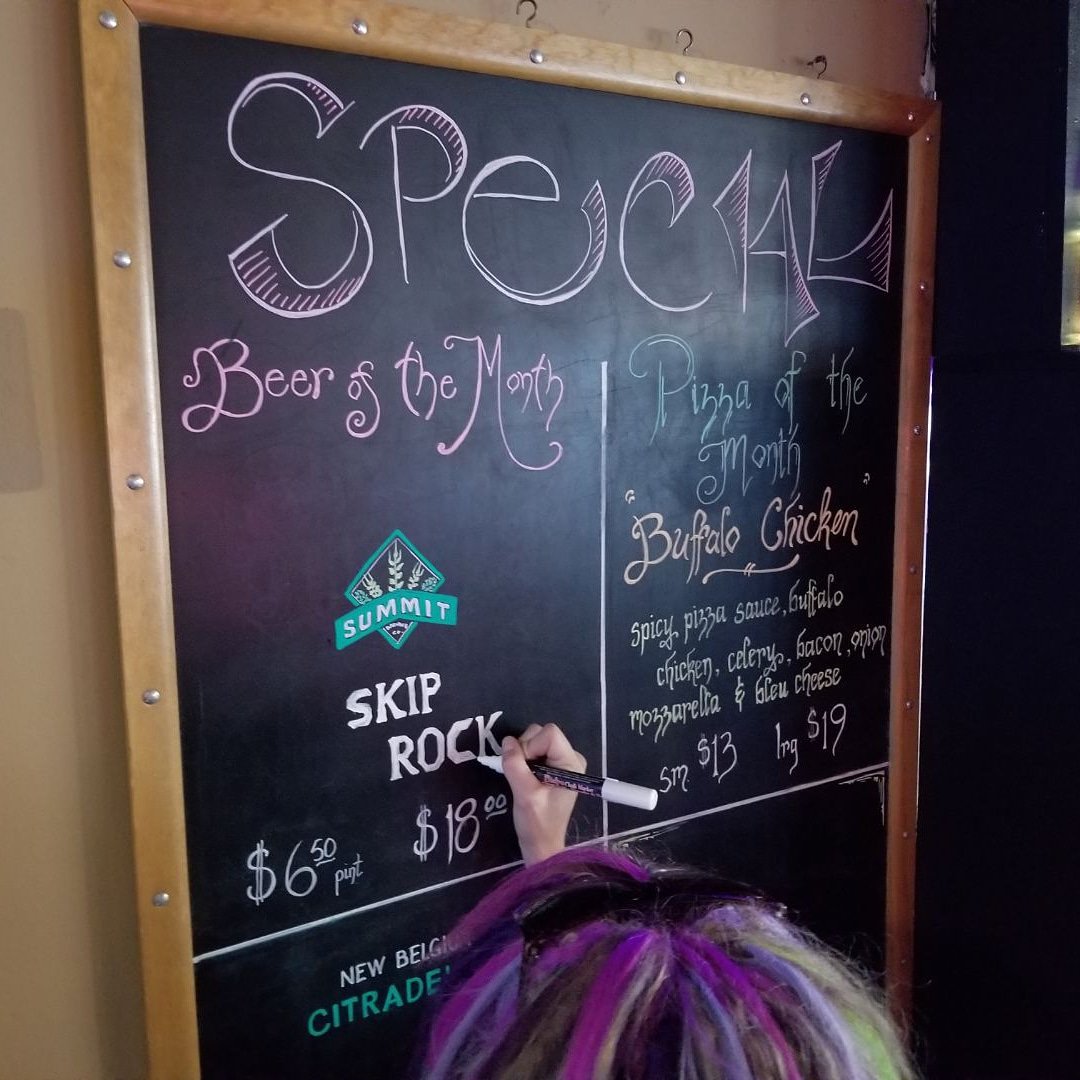 SPeCIAL
Beer of the Month
SUMMIT
SKIP
ROCK
$6.50 pint
$18.00
Pizza of the
Month
"Buffalo Chicken"
spicy pizza sauce, buffalo
chicken, celery, bacon, onion
mozzarella & bleu cheese
sm $13 lrg $19
NEW
CITRADE